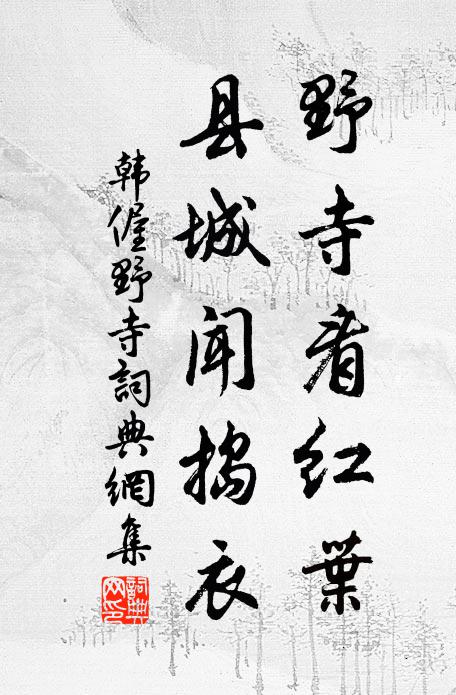 野寺看红葉
县城闻捣衣
韩偓野寺詞典網集
詞典網印